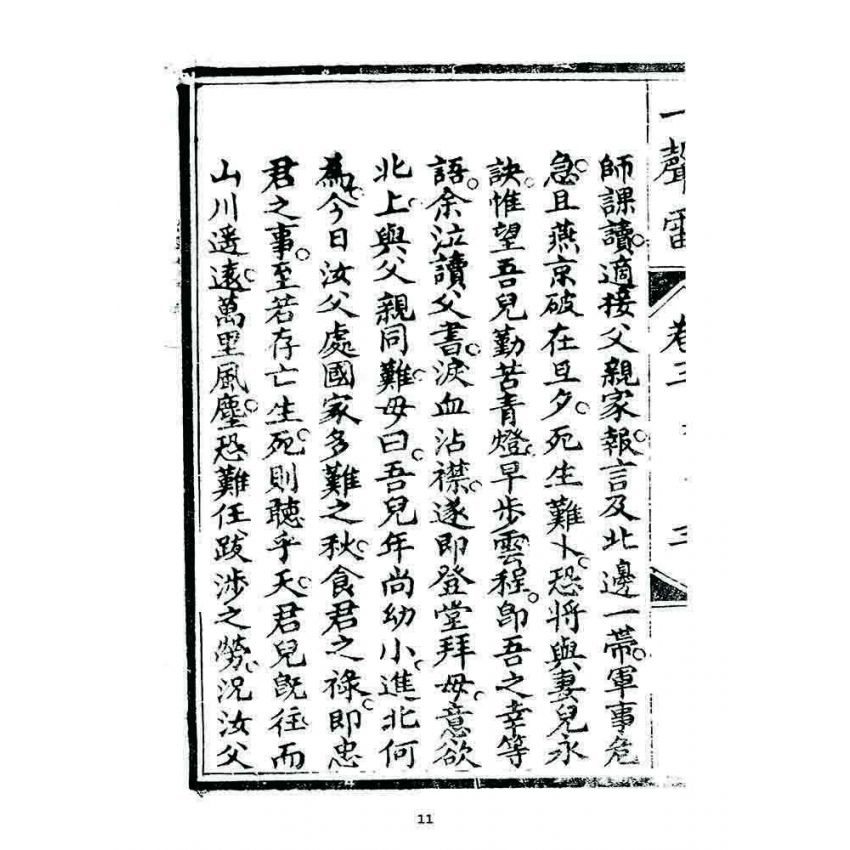 一聲雷 卷三 三
師課讀適接父親家報言及北邊一帶軍事危
急且燕京破在旦夕死生難卜恐將與妻兒永
訣惟望吾兒勤苦青燈早步雲程卽吾之幸等
語余泣讀父書淚血沾襟遂即登堂拜母意欲
北上與父親同難母曰吾兒年尚幼小進北何
為今日汝父處國家多難之秋食君之祿即忠
君之事至若存亡生死則聽乎天君兒旣往而
山川遥遠萬里風塵恐難任跋涉之勞况汝父
11